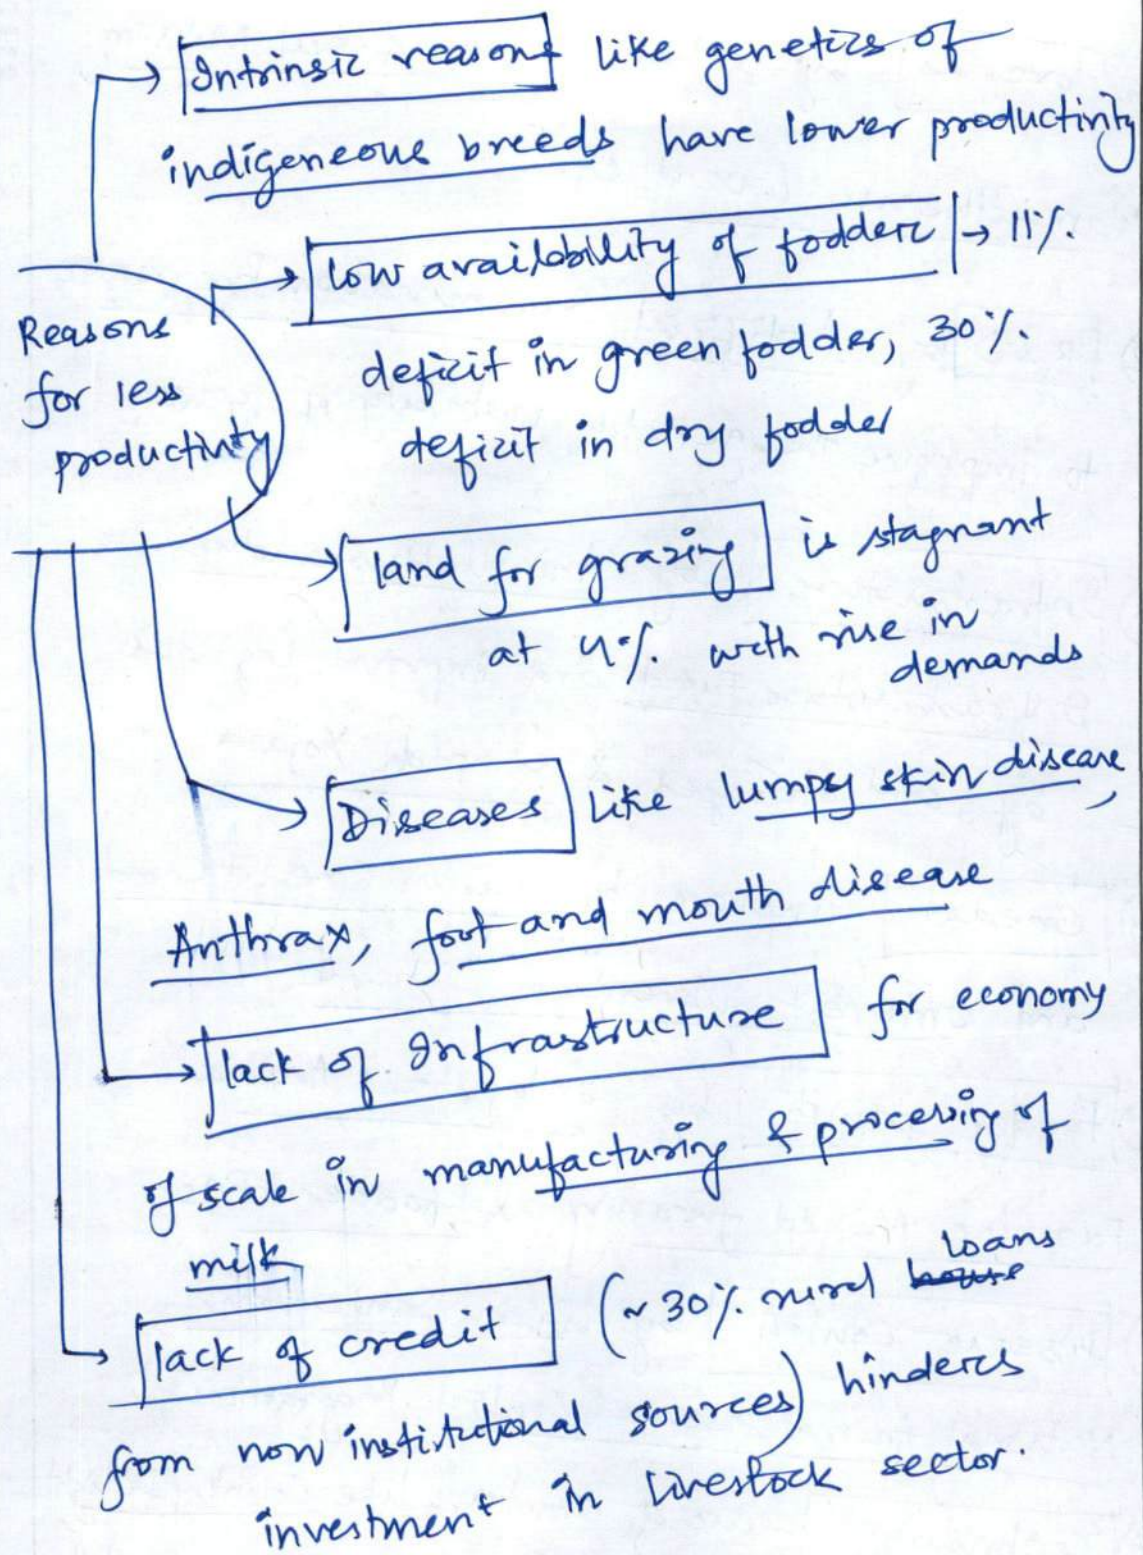 Intrinsic reasons like genetics of
indigeneous breeds have lower productivity
low availability of fodder → 11%.
Reasons
for less
productivity
deficit in green fodder, 30%.
deficit in dry fodder
land for grazing is stagnant
at 4%. with rise in
demands
Diseases like lumpy skin disease,
Anthrax, foot and mouth disease
lack of Infrastructure for economy
of scale in manufacturing & processing of
milk
lack of credit (~30% rural house loans
from non institutional sources) hinders
investment in livestock sector.